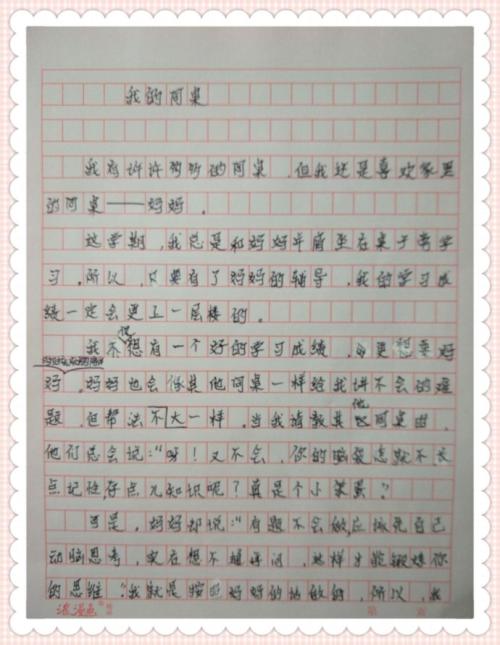 我的同桌
我有许许多多的同桌,但我还是喜欢家里
的同桌——妈妈。
这学期,我总是和妈妈并肩坐在桌子旁学
习。所以,只要有了妈妈的辅导,我的学习成
绩一定会更上一层楼的。
我不仅想有一个好的学习成绩,更想要好
好。妈妈也会像其他同桌一样给我讲不会的难
题,但帮法不大一样。当我请教其他同桌时,
他们总会说:“呀!又不会,你的脑袋怎就不长
点记性存点儿知识呢?真是个小笨蛋?
可是,妈妈却说:“有题不会做,应该先自己
动脑思考,实在想不通再问,这样才能锻炼你
的思维。”我就是按照妈妈的话做的,所以,我
浪漫色
第 页